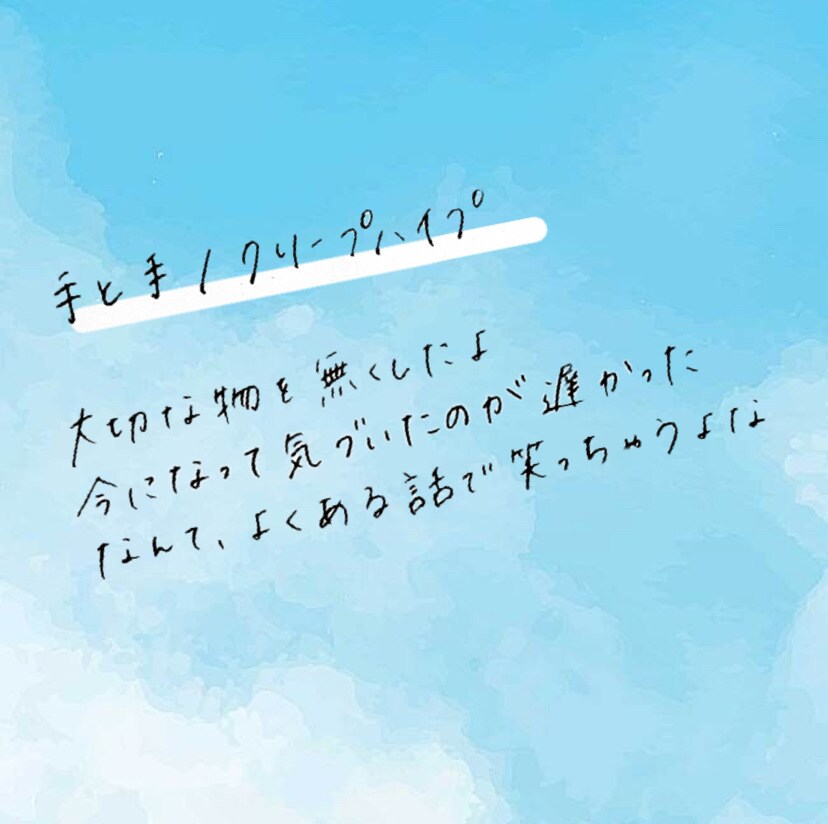 手と手/クリープハイプ
大切な物を無くしたよ
今になって気づいたのが遅かった
なんて、よくある話で笑っちゃうよな